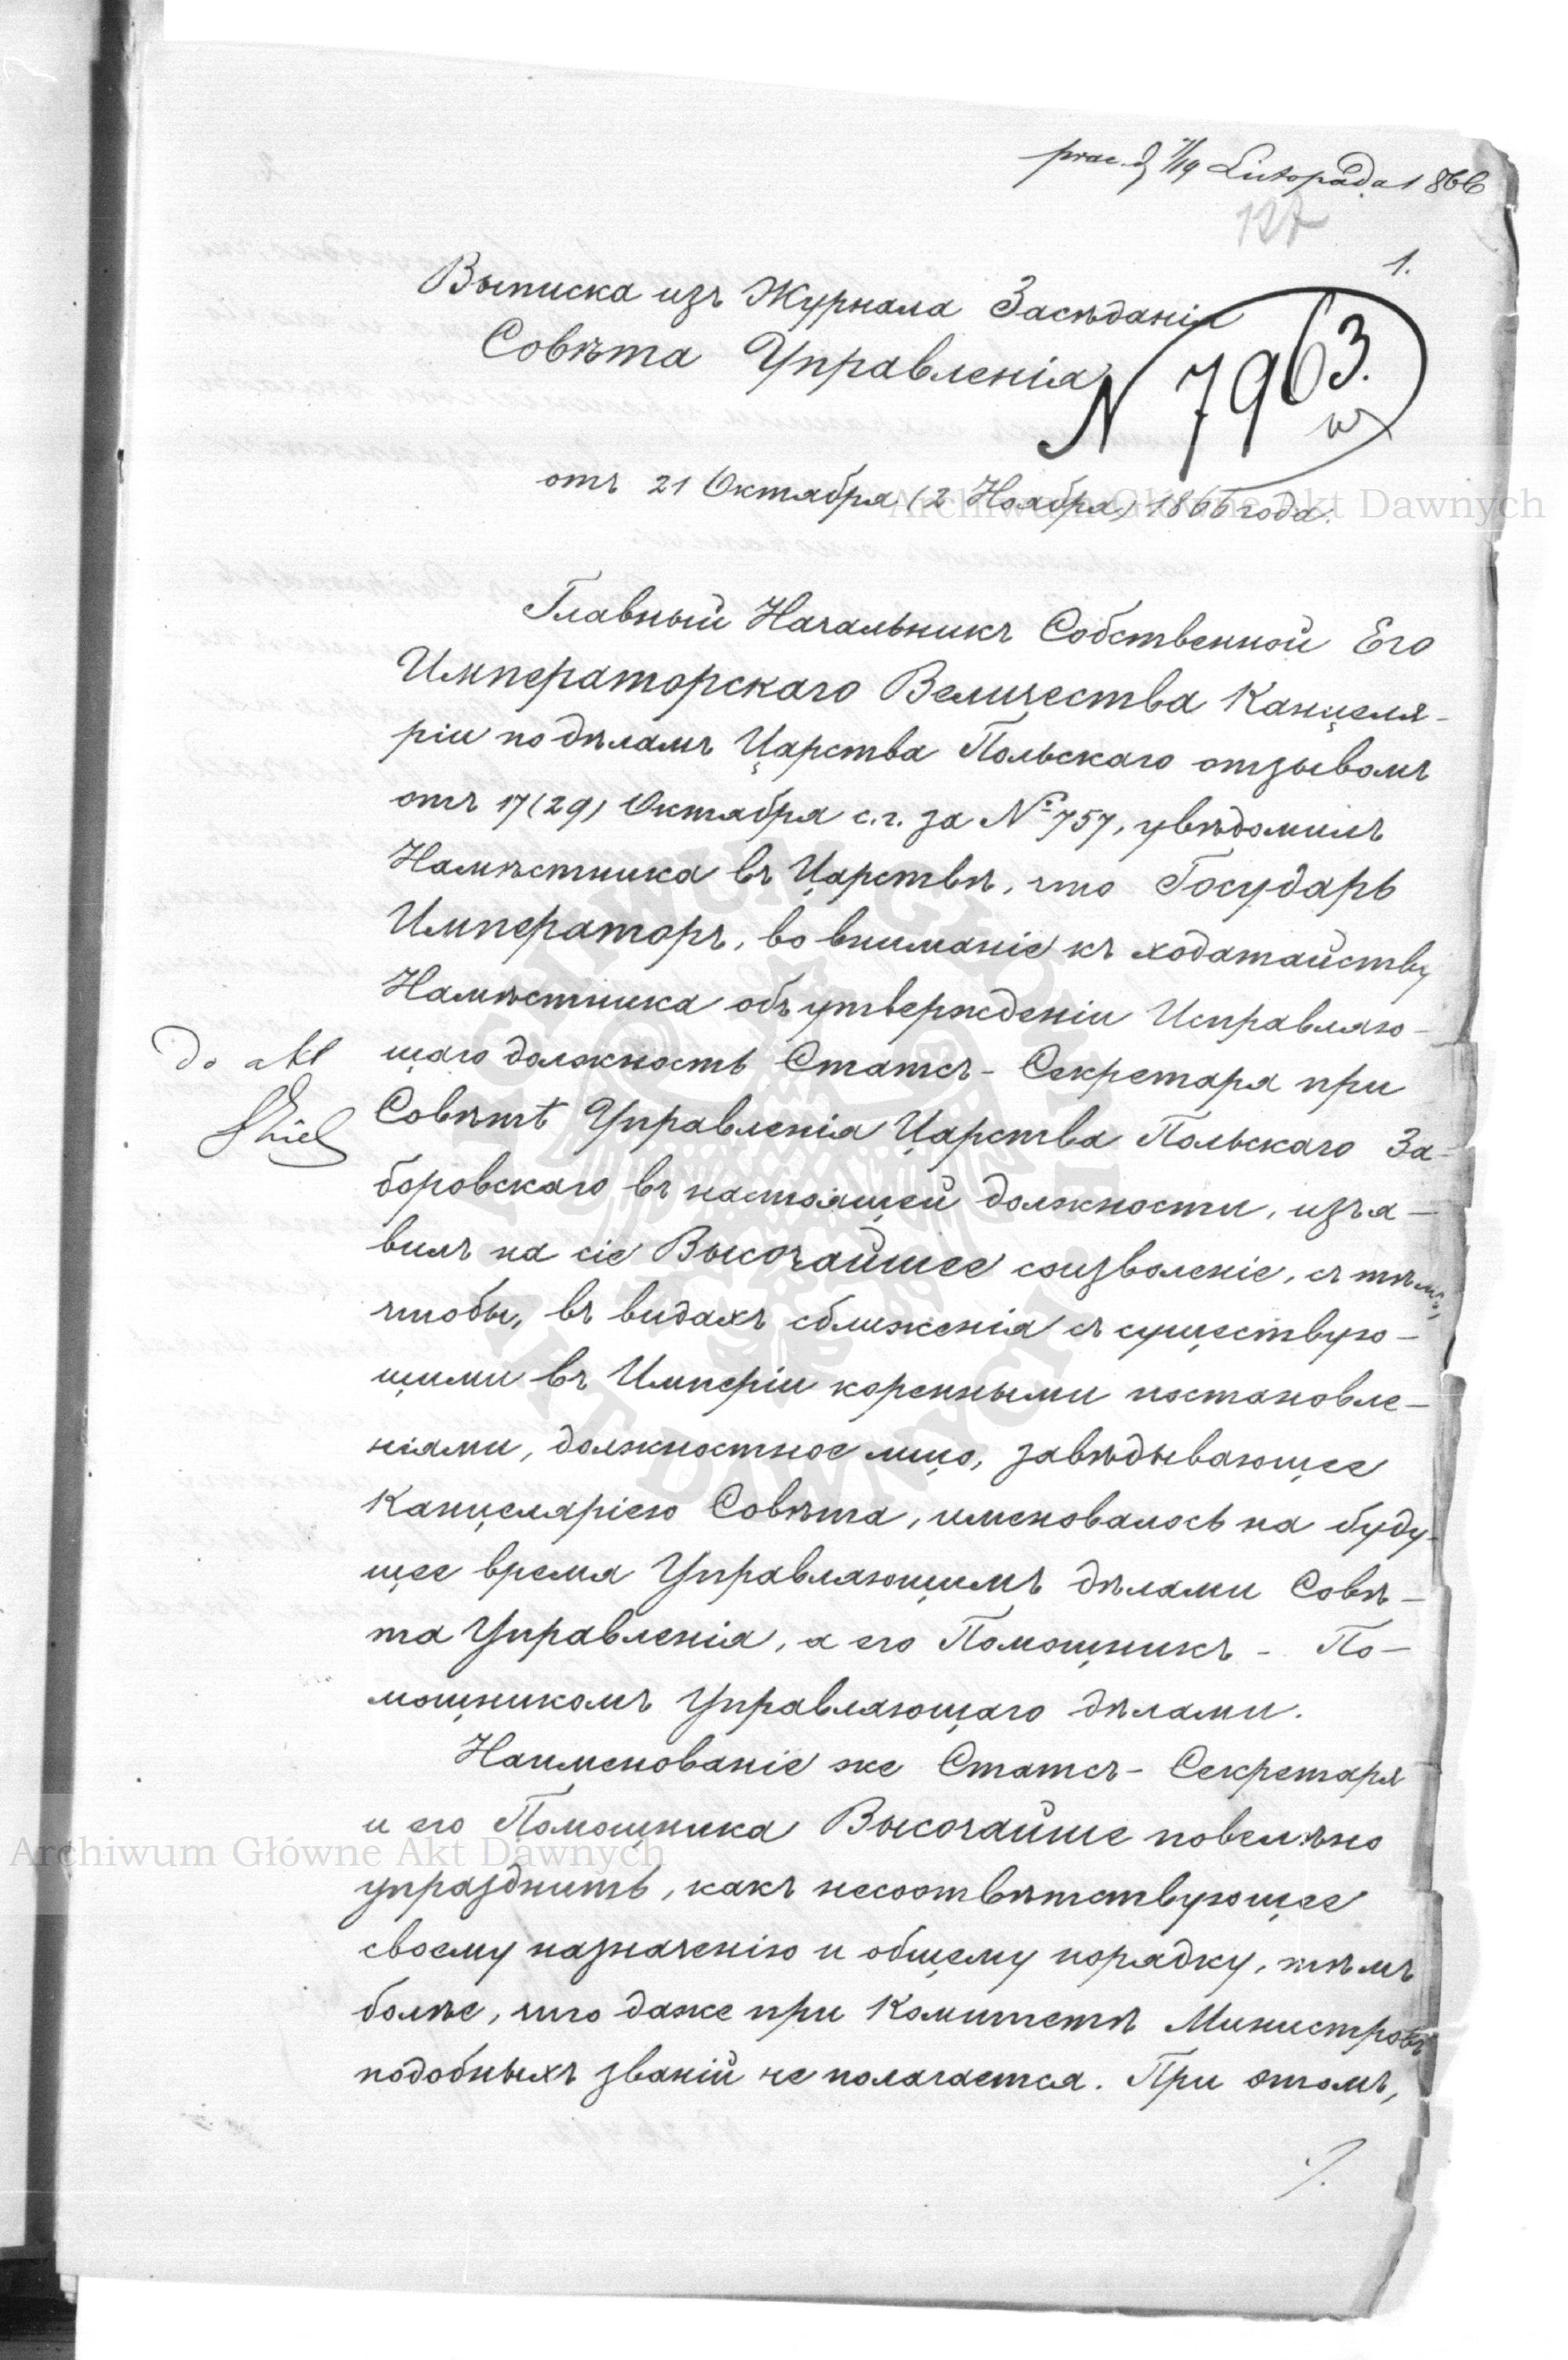 prae. d 7/19 Listopada 1866
127
1.
Выписка изъ Журнала Засѣданія
Совѣта Управленія
N 7963.
отъ 21 Октября (2 Ноября) 1866 года.
Главный Начальникъ Собственной Его
Императорскаго Величества Канцеля-
ріи по дѣламъ Царства Польскаго отзывомъ
отъ 17 (29) Октября с. г. за № 757, увѣдомилъ
Намѣстника въ Царствѣ, что Государь
Императоръ, во вниманіе къ ходатайству
Намѣстника объ утвержденіи Исправляю-
щаго должность Статсъ-Секретаря при
Совѣтѣ Управленія Царства Польскаго За-
боровскаго въ настоящей должности, изъя-
вилъ на сіе Высочайшее соизволеніе, съ тѣмъ,
чтобы, въ видахъ сближенія съ существую-
щими въ Имперіи коренными постановле-
ніями, должностное лицо, завѣдывающее
Канцеляріею Совѣта, именовалось на буду-
щее время Управляющимъ дѣлами Совѣ-
та Управленія, а его Помощникъ - По-
мощникомъ Управляющаго дѣлами.
Наименованіе же Статсъ-Секретаря
и его Помощника Высочайше повелѣно
упразднить, какъ несоотвѣтствующее
своему назначенію и общему порядку, тѣмъ
болѣе, что даже при Комитетѣ Министровъ
подобныхъ званій не полагается. При этомъ,
./.
do akt
Archiwum Główne Akt Dawnych
Archiwum Główne Akt Dawnych
ARCHIWUM GŁÓWNE AKT DAWNYCH